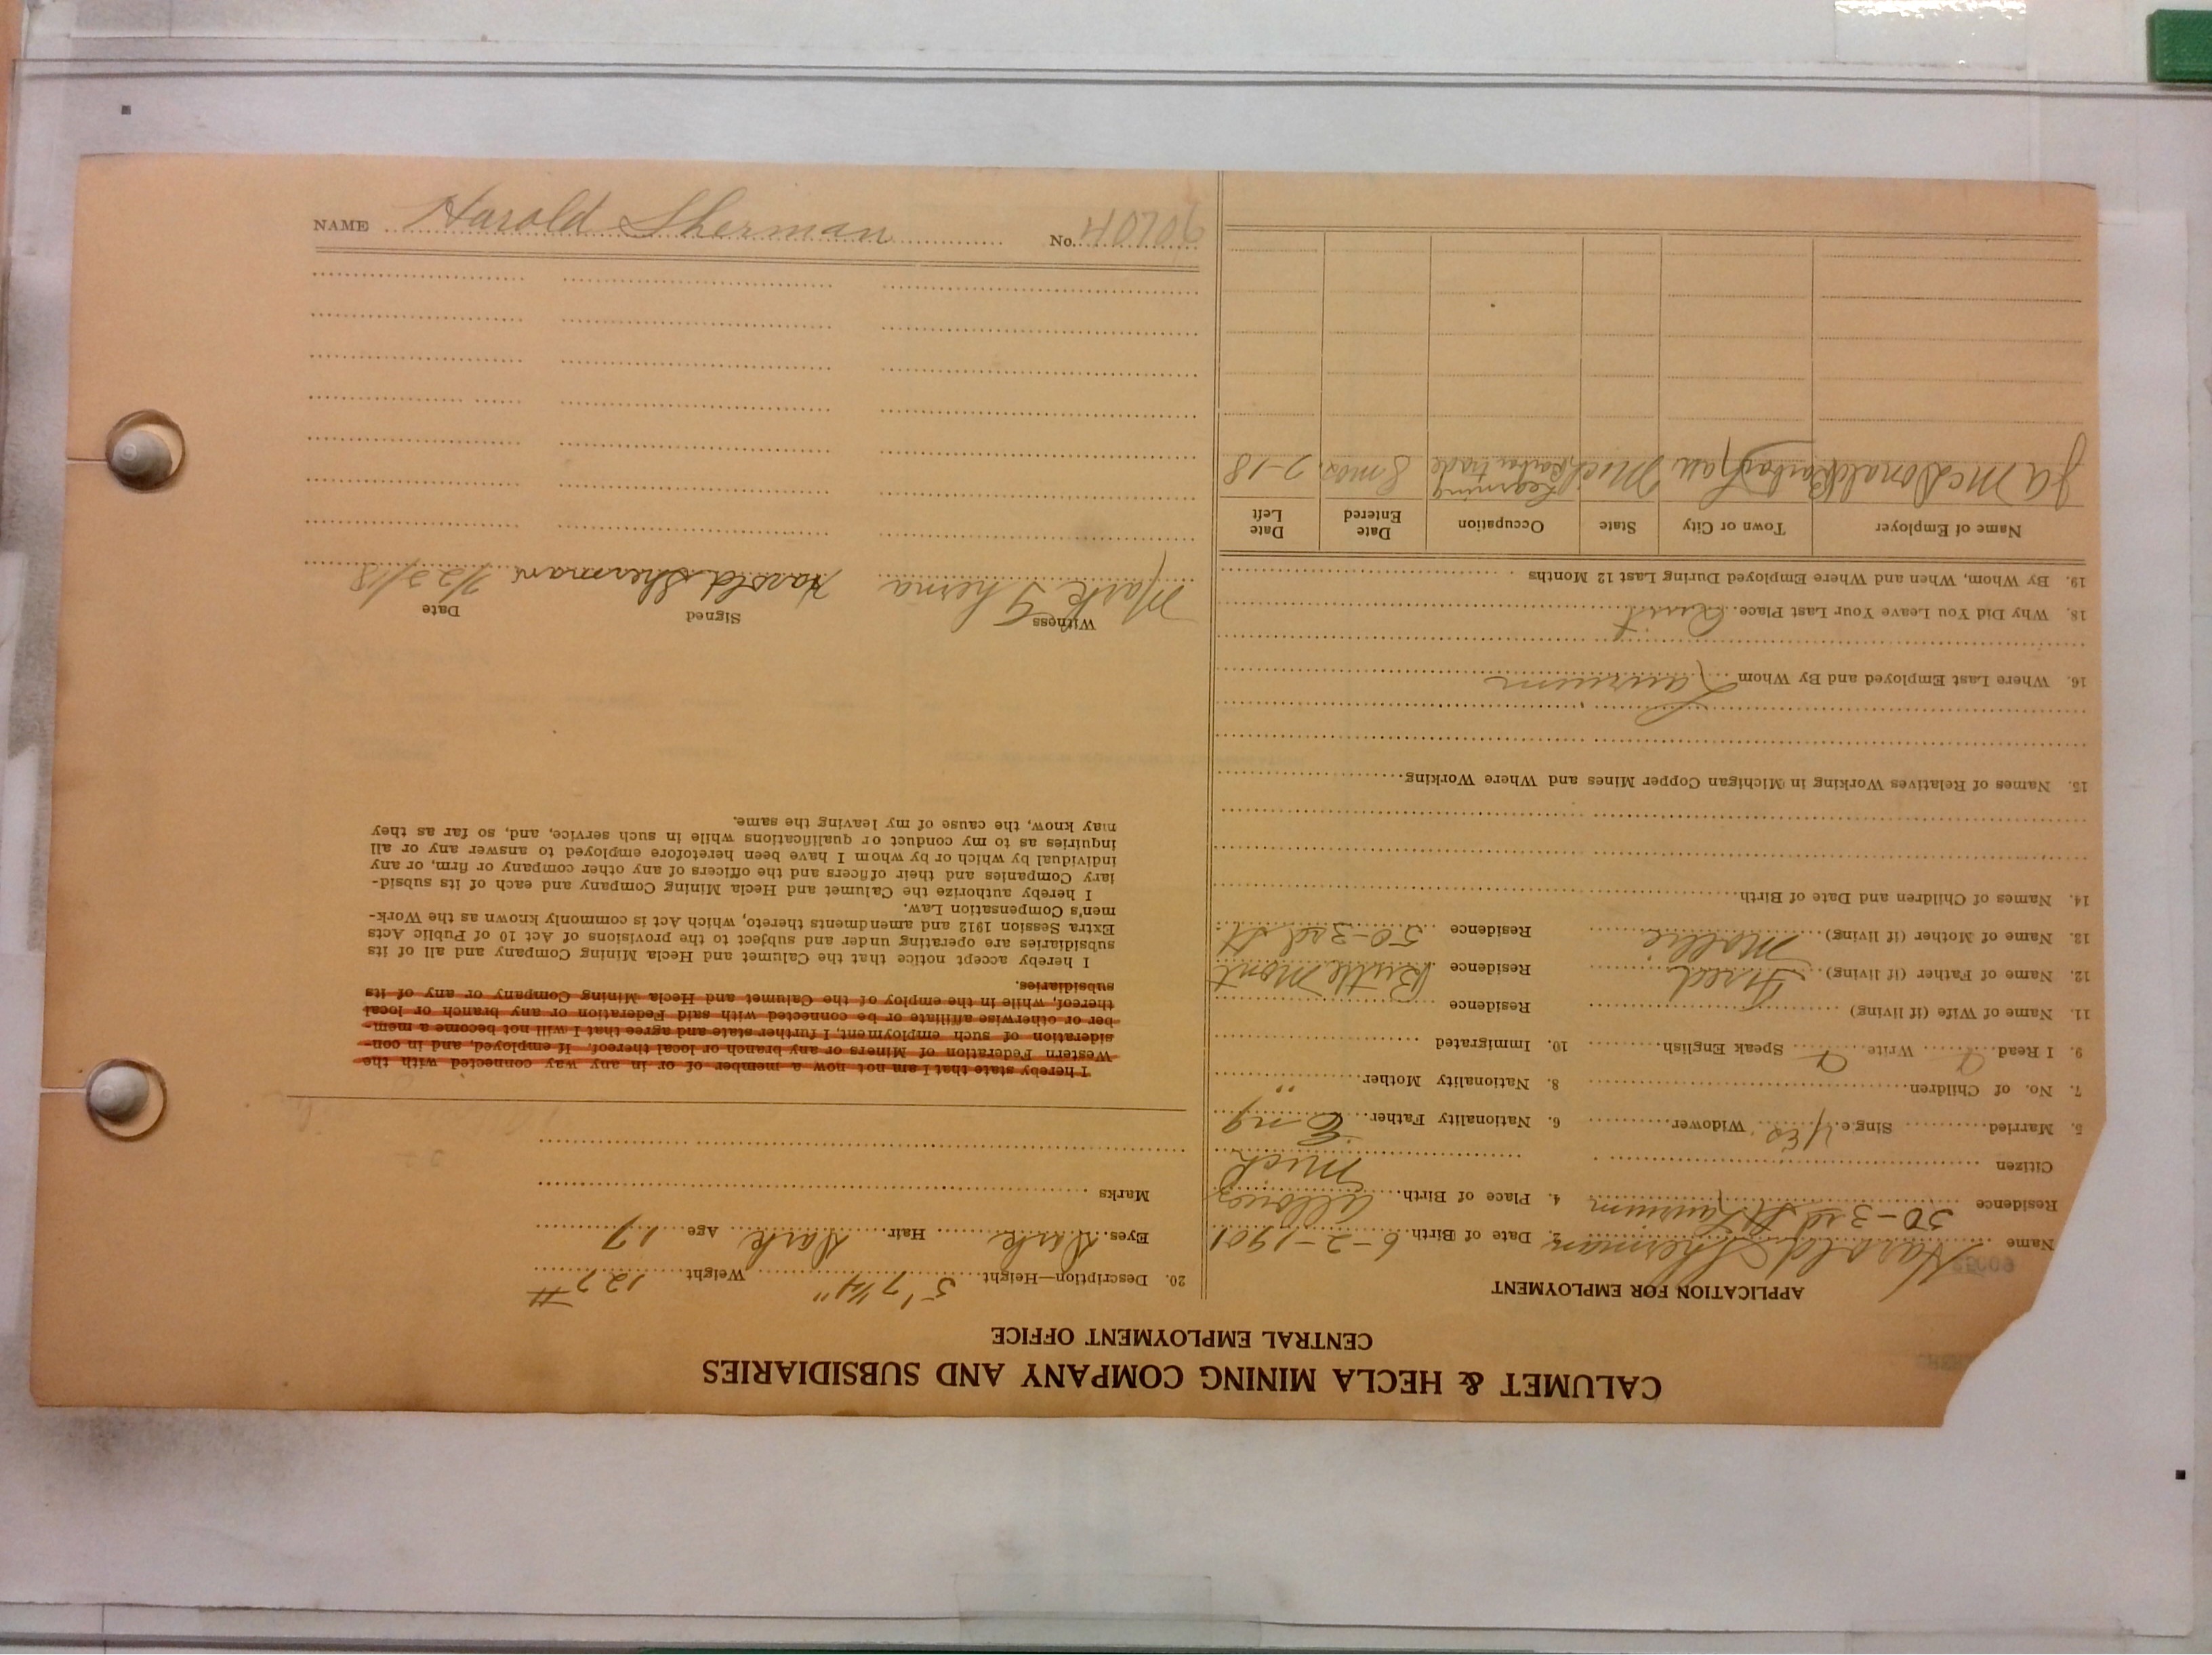 CALUMET & HECLA MINING COMPANY AND SUBSIDIARIES
CENTRAL EMPLOYMENT OFFICE
APPLICATION FOR EMPLOYMENT
Name Harold Sherman 2. Date of Birth. 6-2-1901
Residence 50-3rd St Laurium 4. Place of Birth. Allouez
Citizen Mich
5. Married Single. Yes Widower. 6. Nationality Father. Eng
7. No. of Children. 8. Nationality Mother. "
9. I Read Write Speak English. 10. Immigrated
11. Name of Wife (if living) Residence
12. Name of Father (if living) Fred Residence Butte Mont
13. Name of Mother (if living) Mollie Residence 50-3rd St.
14. Names of Children and Date of Birth.
15. Names of Relatives Working in Michigan Copper Mines and Where Working.
16. Where Last Employed and By Whom Laurium
18. Why Did You Leave Your Last Place. Quit
19. By Whom, When and Where Employed During Last 12 Months
Name of Employer Town or City State Occupation Date Entered Date Left
J A McDonald Lau Mich Learning trade 8 mos. 7-18
20. Description—Height. 5' 7 1/4" Weight 127 #
Eyes. Dark Hair. Dark Age 17
Marks
I hereby state that I am not now a member of or in any way connected with the
Western Federation of Miners or any branch or local thereof. If employed, and in con-
sideration of such employment, I further state and agree that I will not become a mem-
ber or otherwise affiliate or be connected with said Federation or any branch or local
thereof, while in the employ of the Calumet and Hecla Mining Company or any of its
subsidiaries.
I hereby accept notice that the Calumet and Hecla Mining Company and all of its
subsidiaries are operating under and subject to the provisions of Act 10 of Public Acts
Extra Session 1912 and amendments thereto, which Act is commonly known as the Work-
men's Compensation Law.
I hereby authorize the Calumet and Hecla Mining Company and each of its subsid-
iary Companies and their officers and the officers of any other company or firm, or any
individual by which or by whom I have been heretofore employed to answer any or all
inquiries as to my conduct or qualifications while in such service, and, so far as they
may know, the cause of my leaving the same.
Witness Signed Date
Mark Harold Sherman 7/23/18
NAME Harold Sherman No. 40706